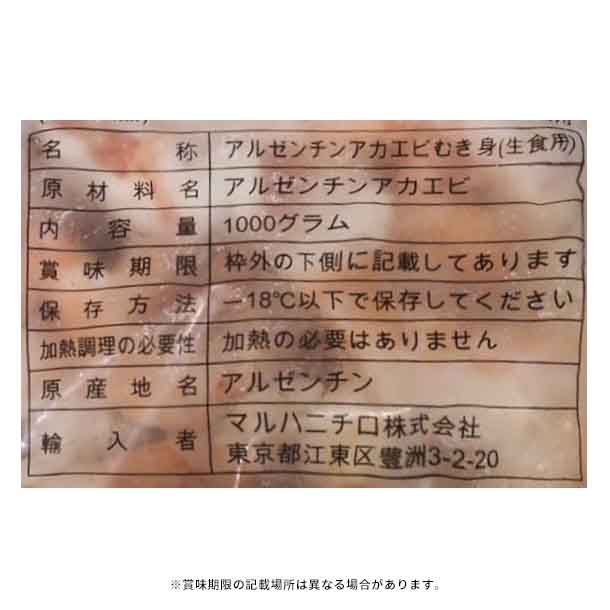 名称 アルゼンチンアカエビむき身(生食用)
原材料名 アルゼンチンアカエビ
内容量 1000グラム
賞味期限 枠外の下側に記載してあります
保存方法 −18℃以下で保存してください
加熱調理の必要性 加熱の必要はありません
原産地名 アルゼンチン
輸入者 マルハニチロ株式会社
東京都江東区豊洲3-2-20
※賞味期限の記載場所は異なる場合があります。